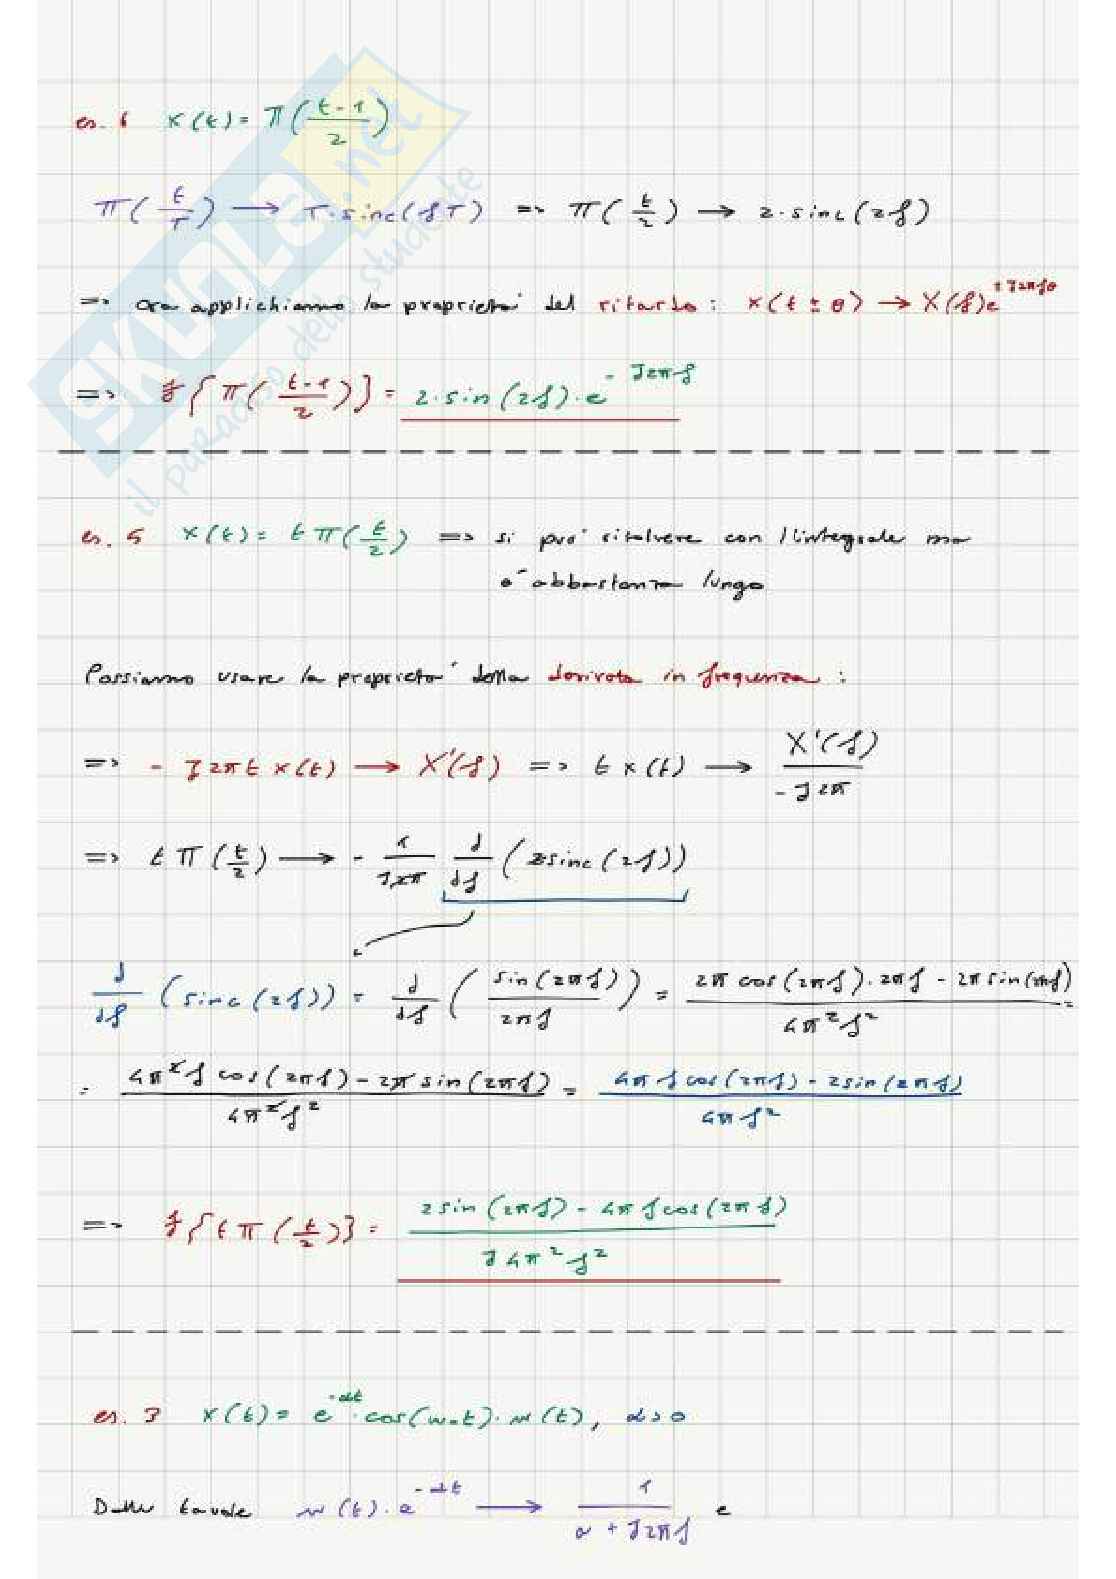 es. 6 x(t) = π((t-1)/2)
π(t/T) → T·sinc(fT) => π(t/2) → 2·sinc(2f)
=> Ora applichiamo la proprietà del ritardo: x(t ± θ) → X(f)e^(±J2πfθ)
=> F{π((t-1)/2)} = 2·sin(2f)·e^(-J2πf)
es. 5 x(t) = tπ(t/2) => si può risolvere con l'integrale ma
è abbastanza lungo
Possiamo usare la proprietà della derivata in frequenza:
=> -J2πt x(t) → X'(f) => t x(t) → X'(f)/(-J2π)
=> tπ(t/2) → -1/(J2π) d/df (2sinc(2f))
d/df (sinc(2f)) = d/df (sin(2πf)/(2πf)) = (2π cos(2πf)·2πf - 2π sin(2πf))/(4π²f²) =
= (4π²f cos(2πf) - 2π sin(2πf))/(4π²f²) = (4πf cos(2πf) - 2sin(2πf))/(4πf²)
=> F{tπ(t/2)} = (2sin(2πf) - 4πf cos(2πf))/(J4π²f²)
es. 3 x(t) = e^(-αt)·cos(ω₀t)·u(t), α>0
Dalle tavole u(t)·e^(-αt) → 1/(α + J2πf) e
SKUOLA.net
il paradiso dello studente